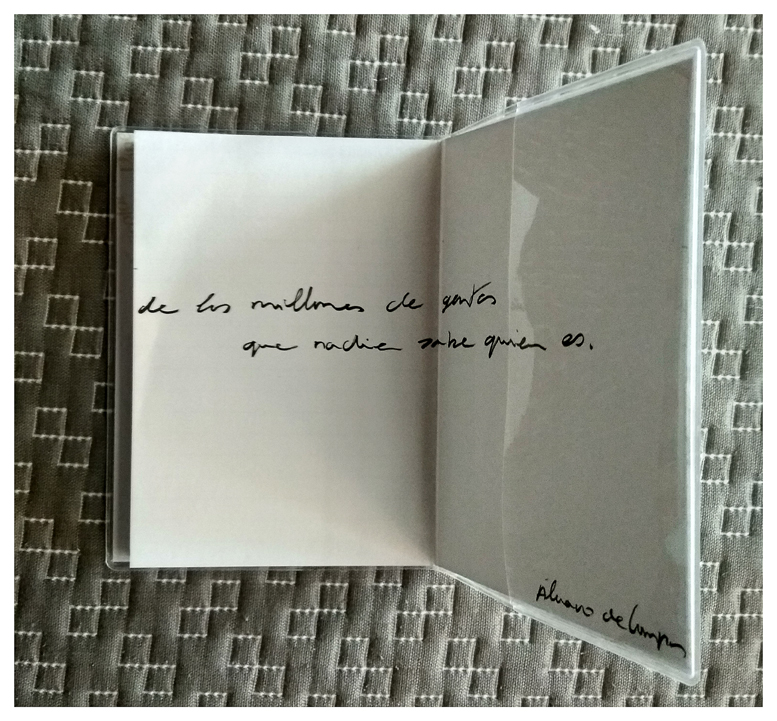 de los millones de gentes
que nadie sabe quien es.
Álvaro de Campos